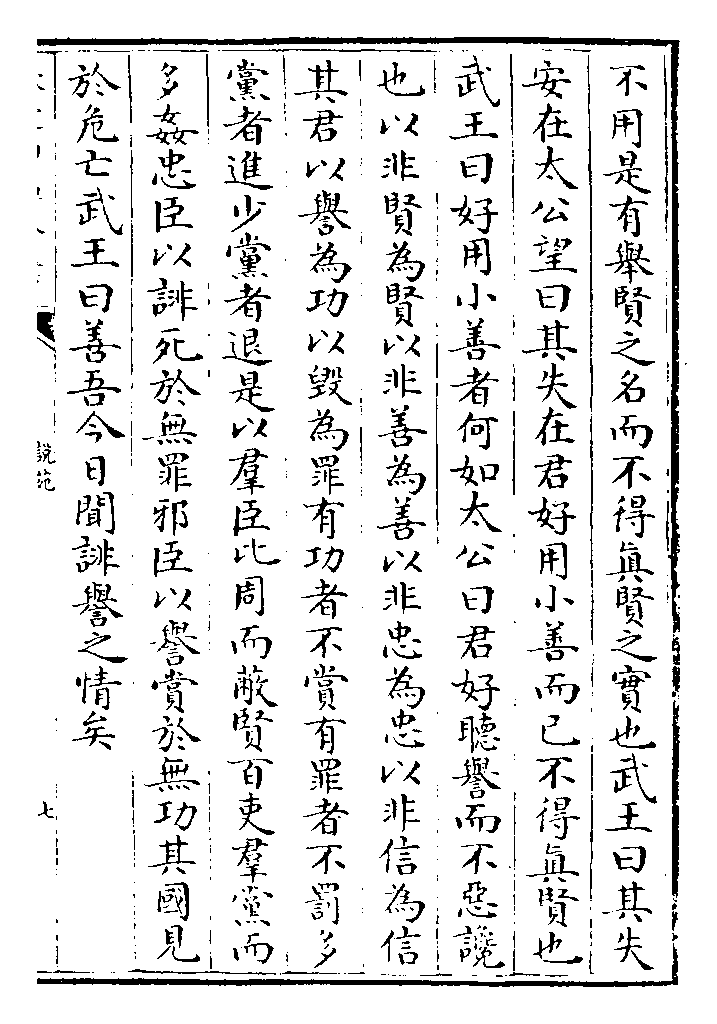 不用是有舉賢之名而不得眞賢之實也武王曰其失
安在太公望曰其失在君好用小善而已不得眞賢也
武王曰好用小善者何如太公曰君好聽譽而不惡讒
也以非賢為賢以非善為善以非忠為忠以非信為信
其君以譽為功以毀為罪有功者不賞有罪者不罰多
黨者進少黨者退是以羣臣比周而蔽賢百吏羣黨而
多姦忠臣以誹死於無罪邪臣以譽賞於無功其國見
於危亡武王曰善吾今日聞誹譽之情矣
說苑
七